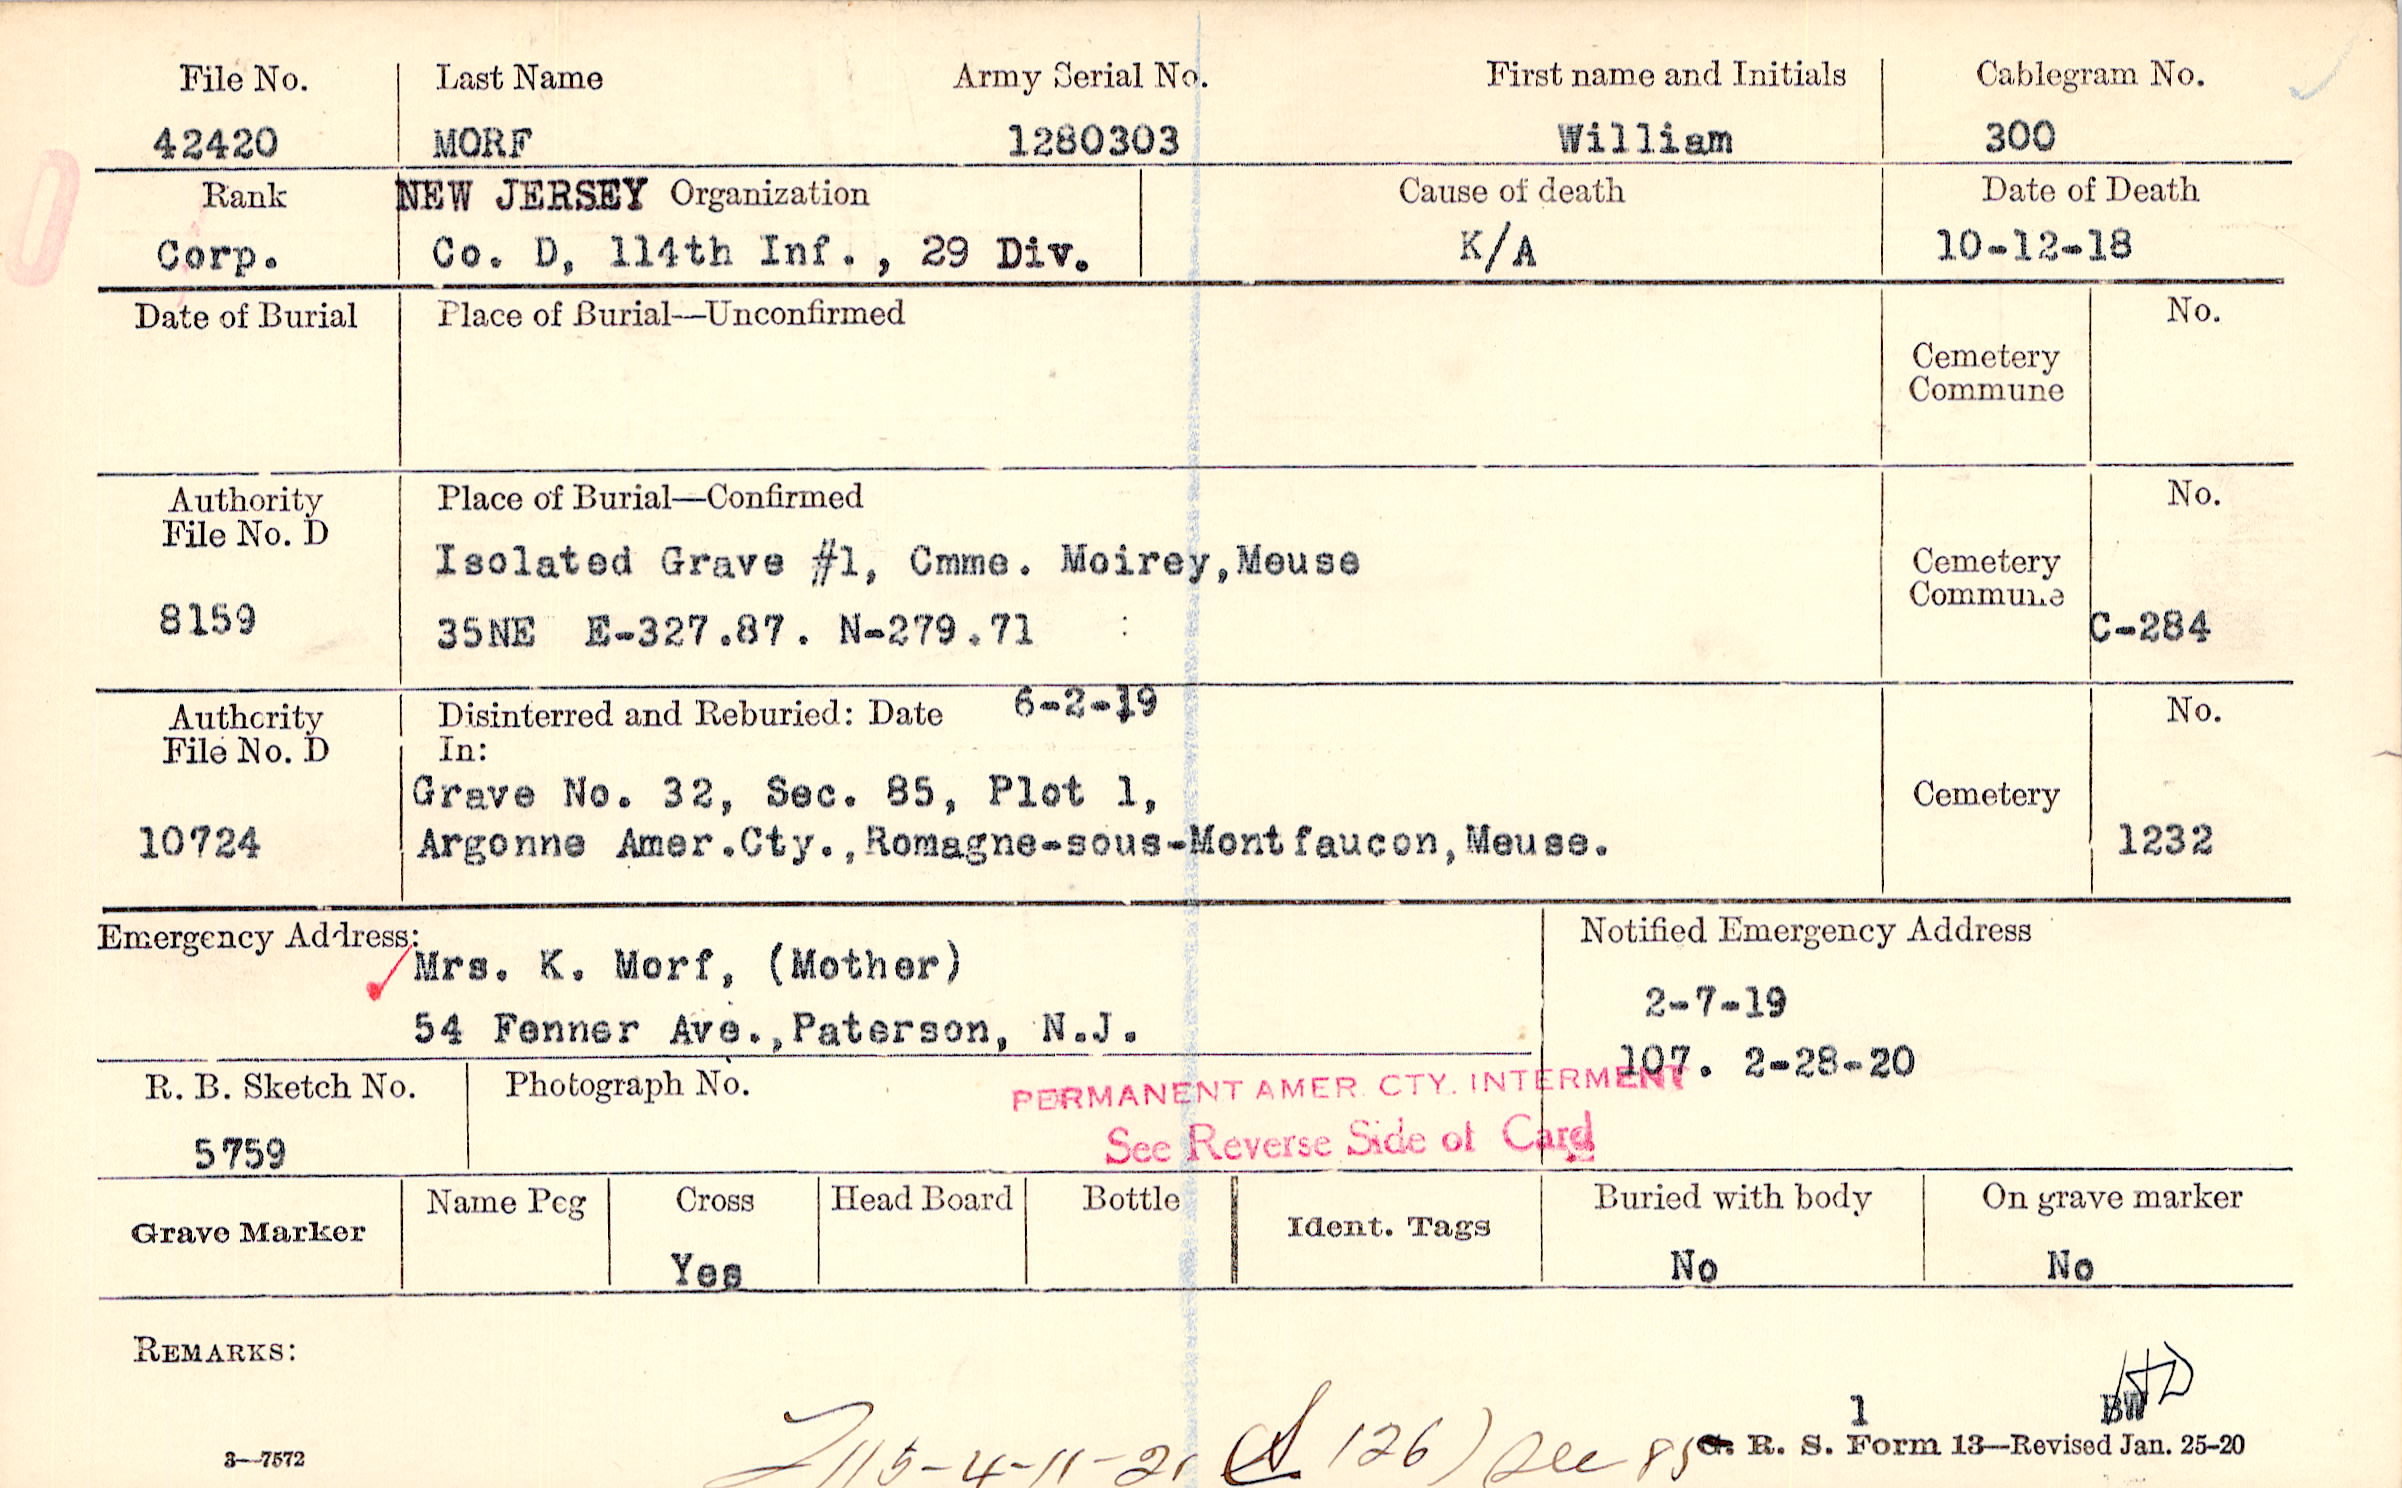 File No. Last Name Army Serial No. First name and Initials Cablegram No.
42420 MORF 1280303 William 300
Rank NEW JERSEY Organization Cause of death Date of Death
Corp. Co. D, 114th Inf., 29 Div. K/A 10-12-18
Date of Burial Place of Burial—Unconfirmed No.
Cemetery
Commune
Authority Place of Burial—Confirmed No.
File No. D
Isolated Grave #1, Cmme. Moirey,Meuse Cemetery
Commune
8159 35NE E-327.87. N-279.71 C-284
Authority Disinterred and Reburied: Date 6-2-19 No.
File No. D In:
Grave No. 32, Sec. 85, Plot 1, Cemetery
10724 Argonne Amer.Cty.,Romagne-sous-Montfaucon,Meuse. 1232
Emergency Address: Notified Emergency Address
Mrs. K. Morf, (Mother) 2-7-19
54 Fenner Ave.,Paterson, N.J.
107. 2-28-20
R. B. Sketch No. Photograph No. PERMANENT AMER. CTY. INTERMENT
See Reverse Side of Card
5759
Grave Marker Name Peg Cross Head Board Bottle Ident. Tags Buried with body On grave marker
Yes No No
REMARKS:
HD
1 BW
3—7572 115-4-11-21 126) See 85 G. R. S. Form 13—Revised Jan. 25-20